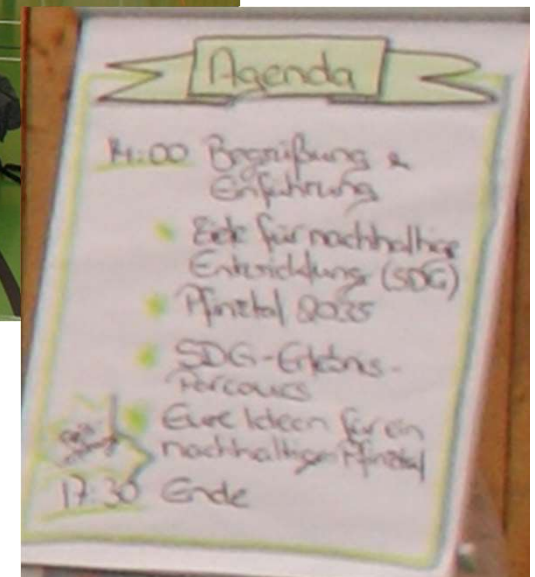 Agenda
14:00 Begrüßung &
Einführung
Ziele für nachhaltige
Entwicklung (SDG)
Pfinztal 2035
SDG-Erlebnis-
Parcours
Eure Ideen für ein
nachhaltiges Pfinztal
17:30 Ende